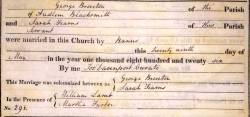 George Brereton of the Parish
of Audlem Blacksmith
and Sarah Kearns of this Parish
Servant
were married in this Church by Banns
this twenty ninth day of
May in the year one thousand eight hundred and twenty six
By me Davenport Curate
This Marriage was solemnized between us George Brereton
Sarah Kearns
In the Presence of William Lamb
Martha Foster
No 291.